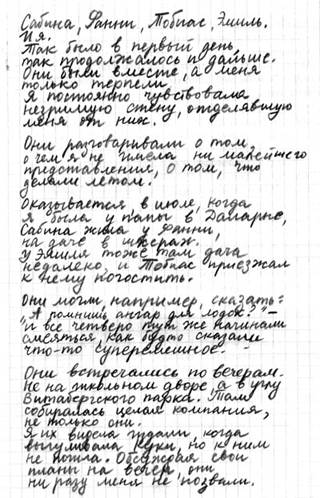 Сабина, Фанни, Тобиас, Эмиль.
И я.
Так было в первый день,
так продолжалось и дальше.
Они были вместе, а меня
только терпели.
Я постоянно чувствовала
незримую стену, отделявшую
меня от них.
Они разговаривали о том,
о чем я не имела ни малейшего
представления, о том, что
делали летом.
Оказывается, в июле, когда
я была у папы в Даларне,
Сабина жила у Фанни,
на даче в шхерах.
У Эмиля тоже там дача
недалеко, и Тобиас приезжал
к нему погостить.
Они могли, например, сказать:
"А помнишь ангар для лодок?" –
и все четверо тут же начинали
смеяться, как будто сказали
что-то суперсмешное.
Они встречались по вечерам.
Не на школьном дворе, а в углу
Витабергского парка. Там
собиралась целая компания,
не только они.
Я их видела издали, когда
выгуливала Нуки, но к ним
не подходила. Обсуждая свои
планы на вечер, они
ни разу меня не позвали.